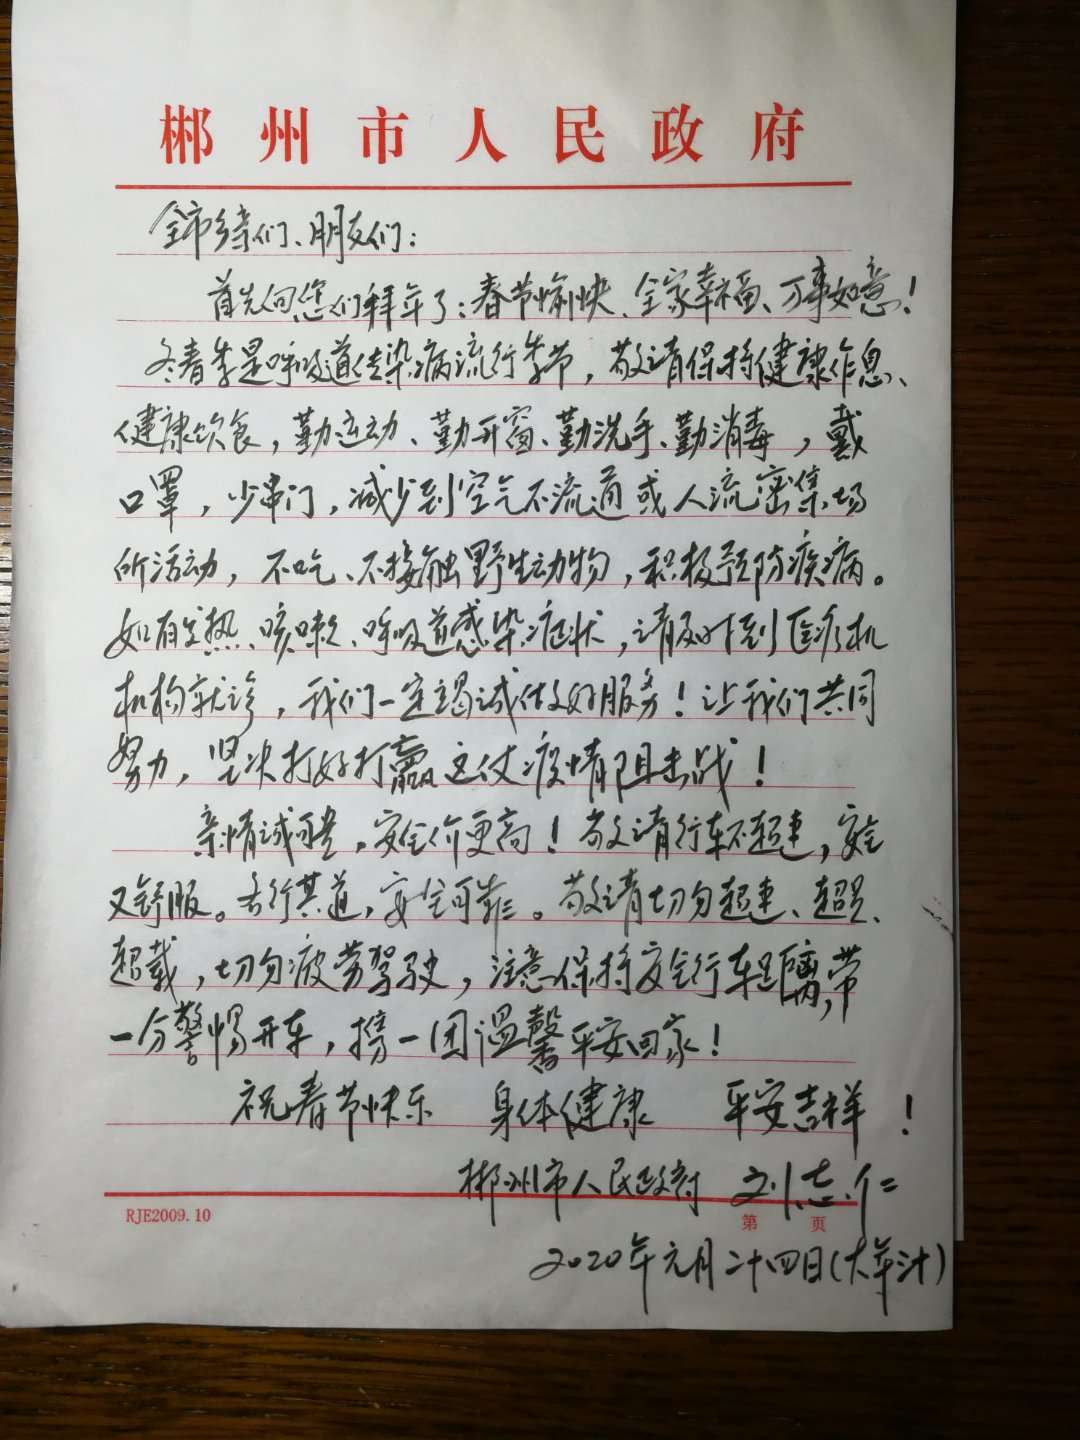 郴州市人民政府
全市乡亲们、朋友们：
首先向您们拜年了：春节愉快、全家幸福、万事如意！
冬春季是呼吸道传染病流行季节，敬请保持健康作息、
健康饮食，勤运动、勤开窗、勤洗手、勤消毒，戴
口罩，少串门，减少到空气不流通或人流密集场
所活动，不吃、不接触野生动物，积极预防疾病。
如有发热、咳嗽、呼吸道感染症状，请及时到医疗机
机构就诊，我们一定竭诚做好服务！让我们共同
努力，坚决打好打赢这仗疫情阻击战！
亲情诚可贵，安全价更高！敬请行车不超速，安全
又舒服。各行其道，安全可靠。敬请切勿超速、超员、
超载，切勿疲劳驾驶，注意保持安全行车距离，带
一分警惕开车，携一团温馨平安回家！
祝春节快乐 身体健康 平安吉祥！
郴州市人民政府 刘志仁
RJE2009.10 第 页
2020年元月二十四日(大年卅)